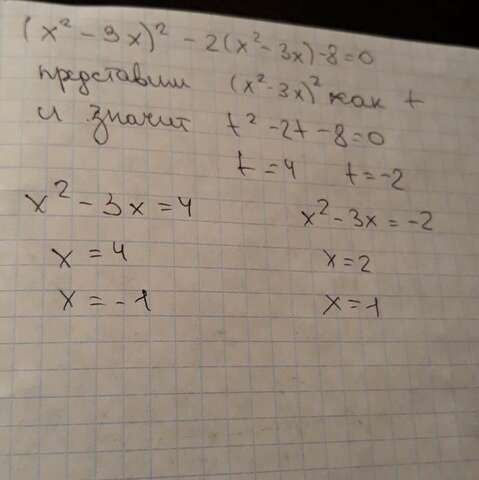 (x² - 3x)² - 2(x² - 3x) - 8 = 0
представим (x² - 3x)² как t
и значит t² - 2t - 8 = 0
t = 4 t = -2
x² - 3x = 4 x² - 3x = -2
x = 4 x = 2
x = -1 x = 1